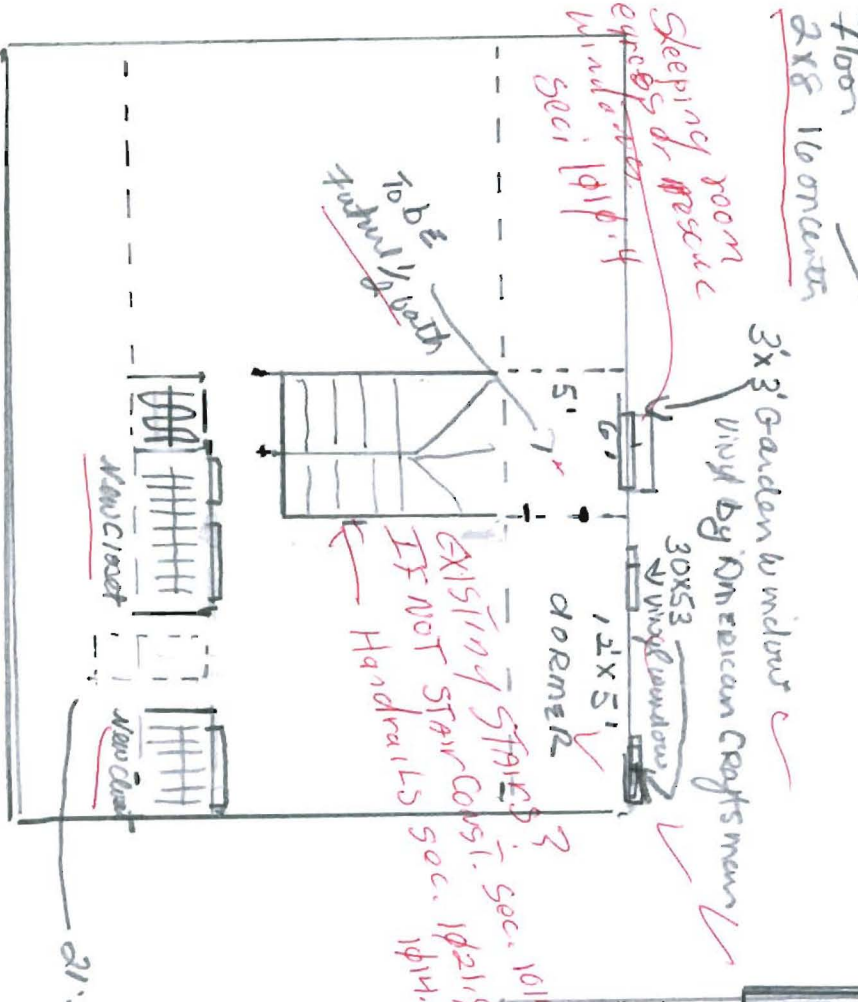 floor
2x8 16 oncenter
Sleeping room
egress or rescue
window.
sec: 1010.4
3'x3' Garden window
vinyl by American Craftsman
30x53
vinyl window
To be
Future 1/2 bath
5'
6'
12'x5'
dORMER
EXISTING STAIRS ?
IF NOT STAIR CONST. SEC. 101
Handrails SEC. 1021.
1014.
New Closet
New Closet